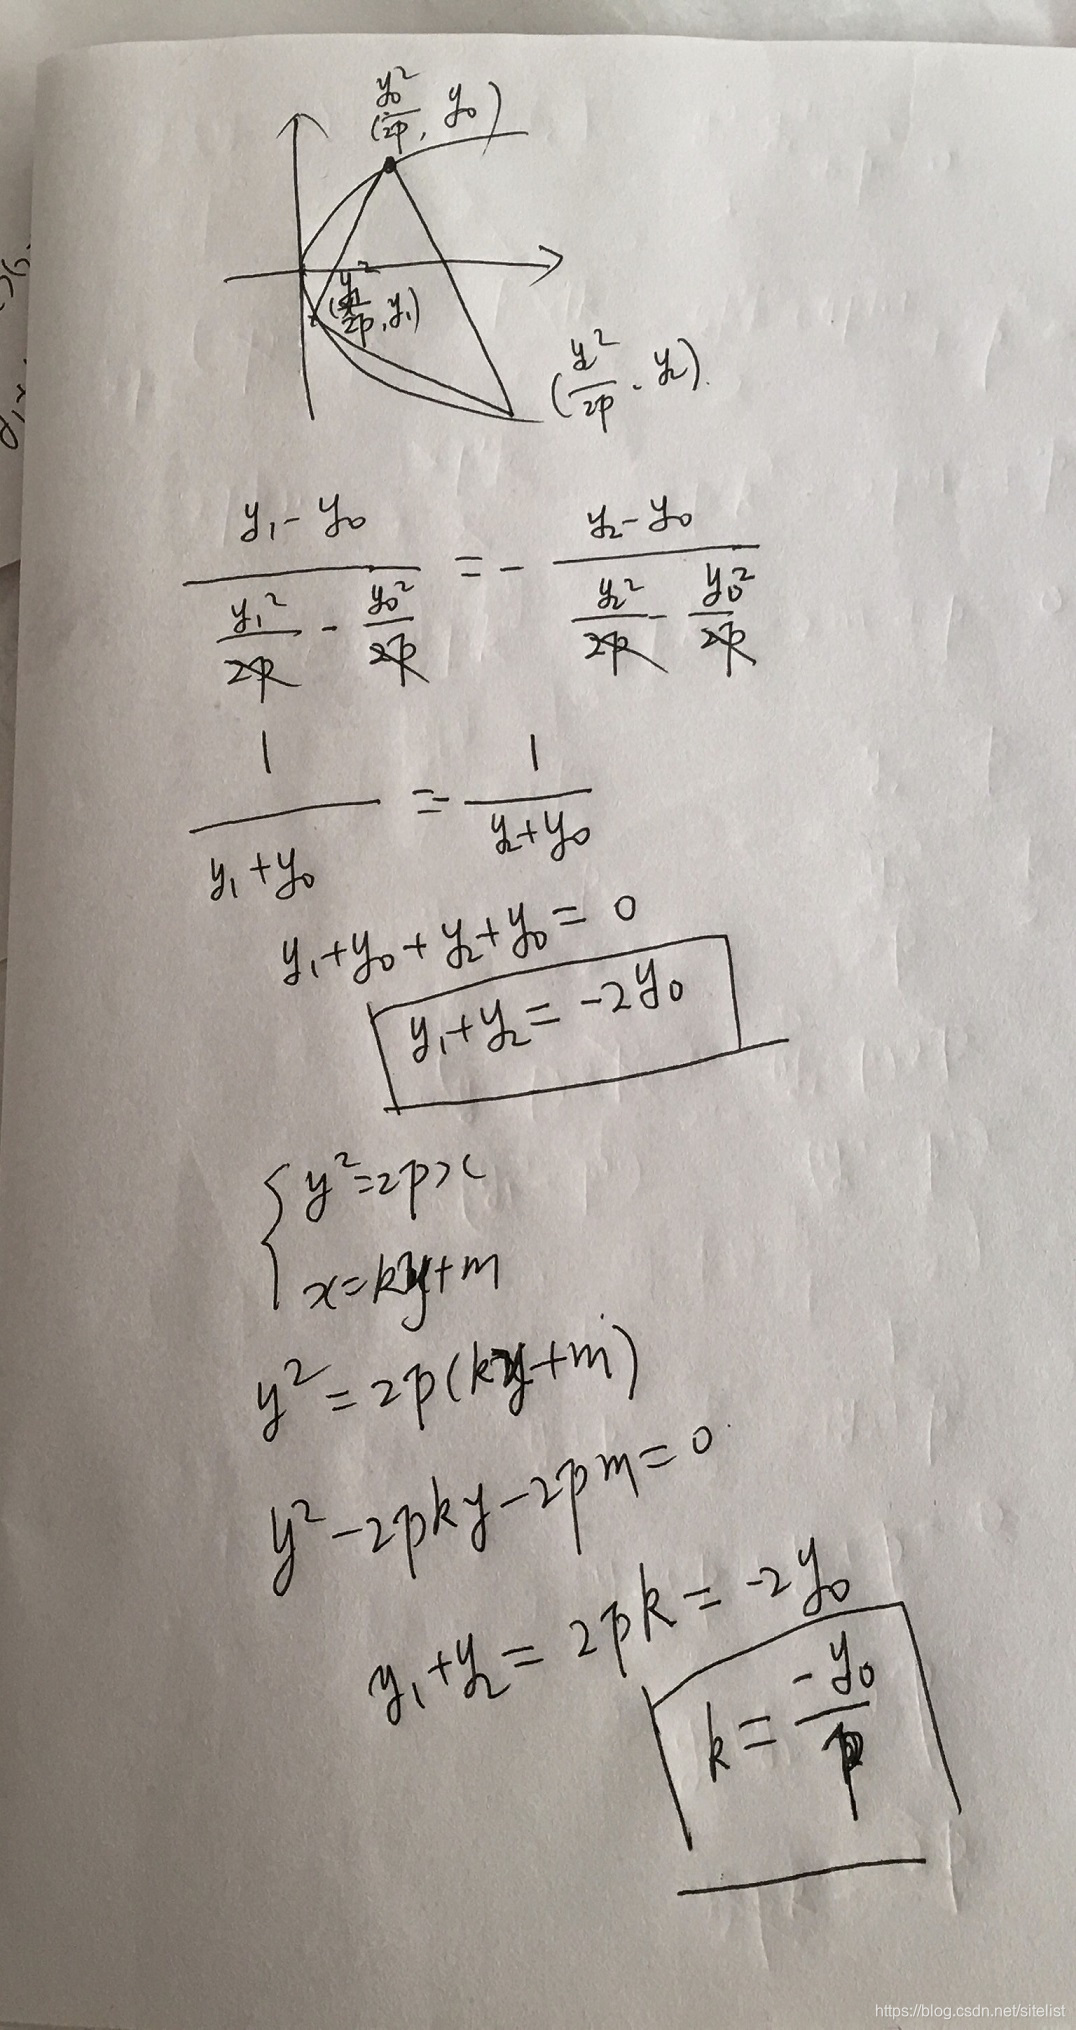 (y₀²/2p, y₀)
(y₁²/2p, y₁)
(y₂²/2p, y₂)
(y₁-y₀)/(y₁²/2p - y₀²/2p) = -(y₂-y₀)/(y₂²/2p - y₀²/2p)
1/(y₁+y₀) = -1/(y₂+y₀)
y₁+y₀+y₂+y₀=0
y₁+y₂=-2y₀
{y²=2px
x=ky+m
y²=2p(ky+m)
y²-2pky-2pm=0
y₁+y₂=2pk=-2y₀
k=-y₀/p
https://blog.csdn.net/sitelist